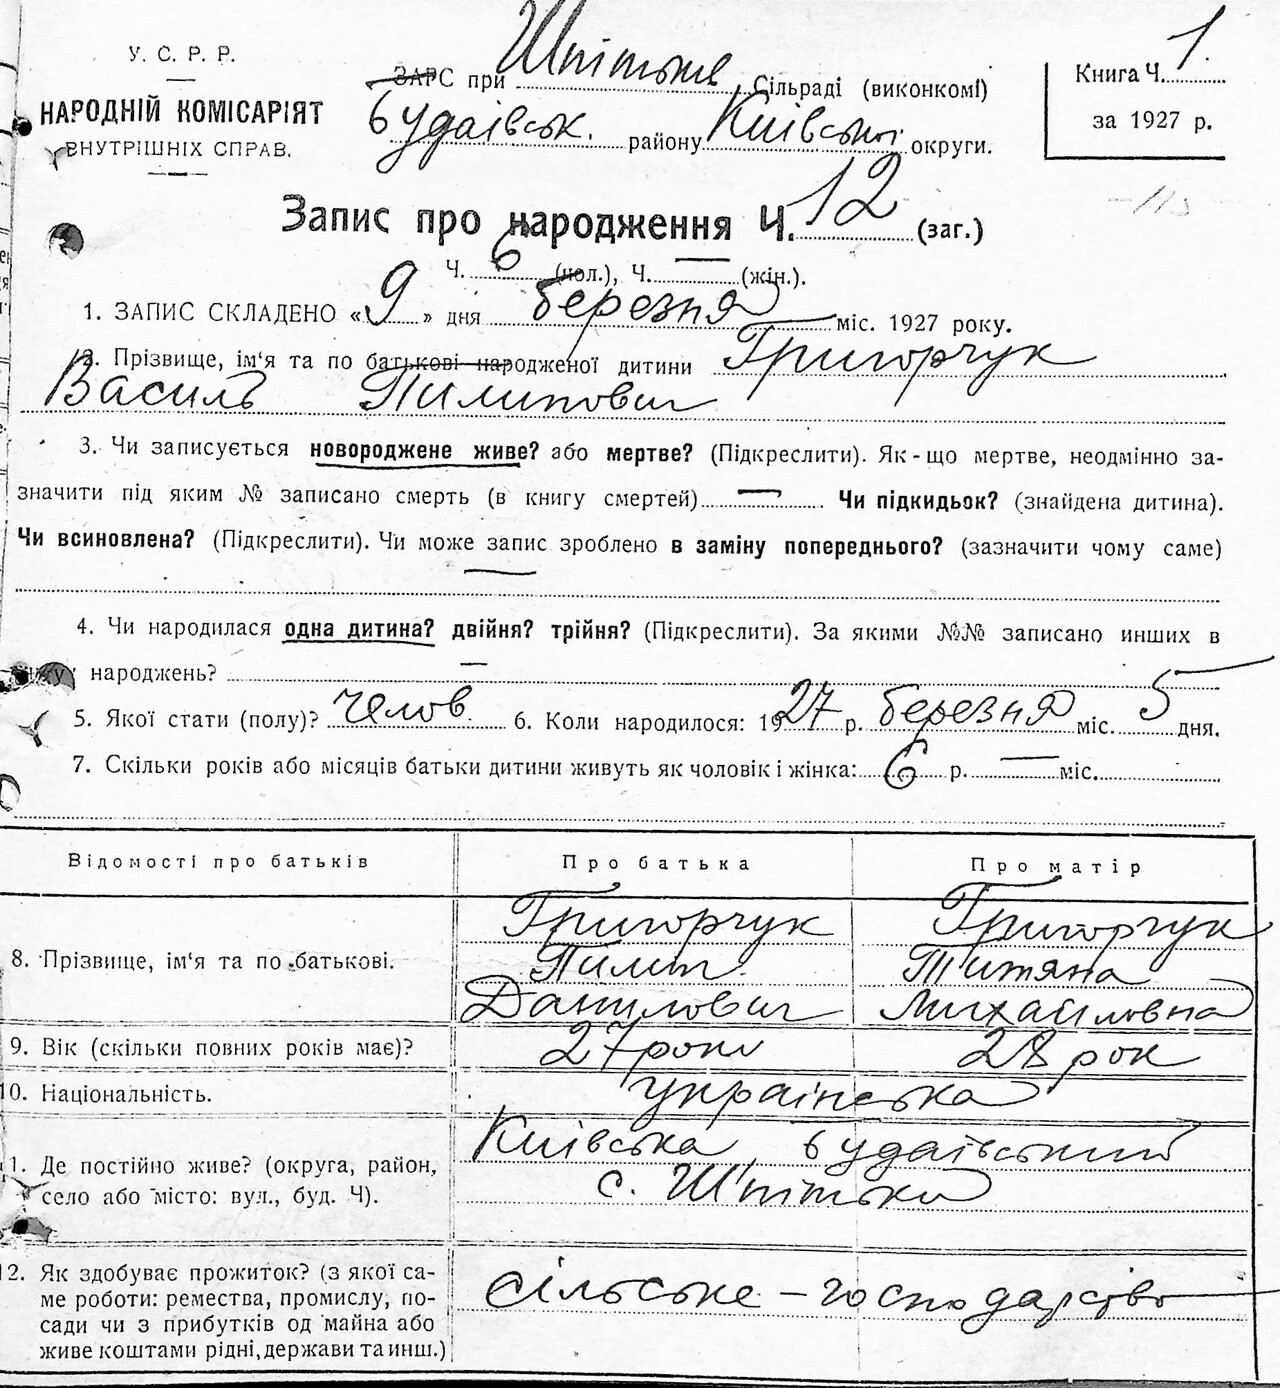 У. С. Р. Р.
НАРОДНІЙ КОМІСАРІЯТ
ВНУТРІШНІХ СПРАВ.
ЗАРС при Шпітьке Сільраді (виконкомі)
Будаівськ. району Київської округи.
Книга Ч. 1.
за 1927 р.
Запис про народження Ч. 12 (заг.)
Ч. 6 (чол.), Ч. — (жін.).
1. ЗАПИС СКЛАДЕНО «9» дня березня міс. 1927 року.
2. Прізвище, ім‘я та по батькові народженої дитини Григорчук
Василь Пилипович
3. Чи записується новороджене живе? або мертве? (Підкреслити). Як-що мертве, неодмінно за-
значити під яким № записано смерть (в книгу смертей) — Чи підкидьок? (знайдена дитина).
Чи всиновлена? (Підкреслити). Чи може запис зроблено в заміну попереднього? (зазначити чому саме)
—
4. Чи народилася одна дитина? двійня? трійня? (Підкреслити). За якими №№ записано инших в
книгу народжень? —
5. Якої стати (полу)? челов. 6. Коли народилося: 1927 р. березня міс. 5 дня.
7. Скільки років або місяців батьки дитини живуть як чоловік і жінка: 6 р. — міс.
Відомості про батьків Про батька Про матір
8. Прізвище, ім‘я та по батькові. Григорчук Григорчук
Пилип Титяна
Данилович Михайловна
9. Вік (скільки повних років має)? 27 роки 28 рок
10. Національність. українська
Київська, Будаівський
11. Де постійно живе? (округа, район,
село або місто: вул., буд. Ч). с. Шпітьки
12. Як здобуває прожиток? (з якої са-
ме роботи: ремества, промислу, по- сільське – господарство
сади чи з прибутків од майна або
живе коштами рідні, держави та инш.)